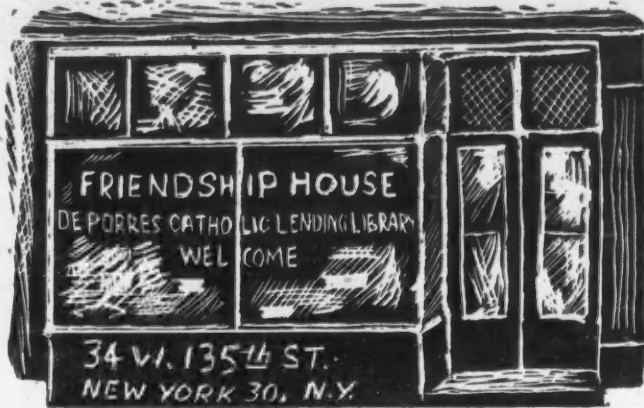 FRIENDSHIP HOUSE
DE PORRES CATHOLIC LENDING LIBRARY
WELCOME
34 W. 135th ST.
NEW YORK 30, N.Y.